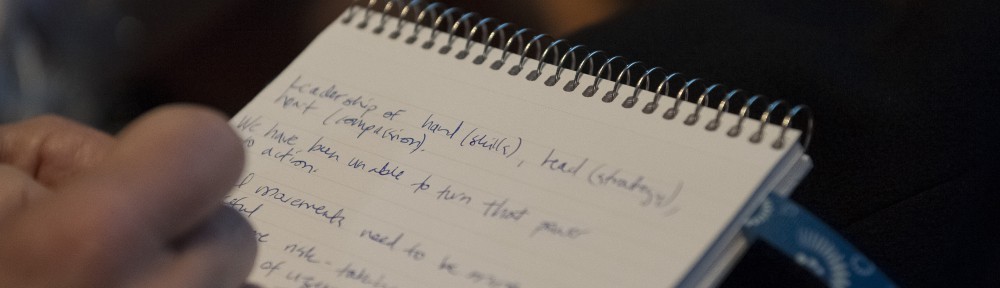 Leadership of hand (skills), head (strategy),
heart (compassion).
We have been unable to turn that power
to action.
movements need to be
risk-taking
of